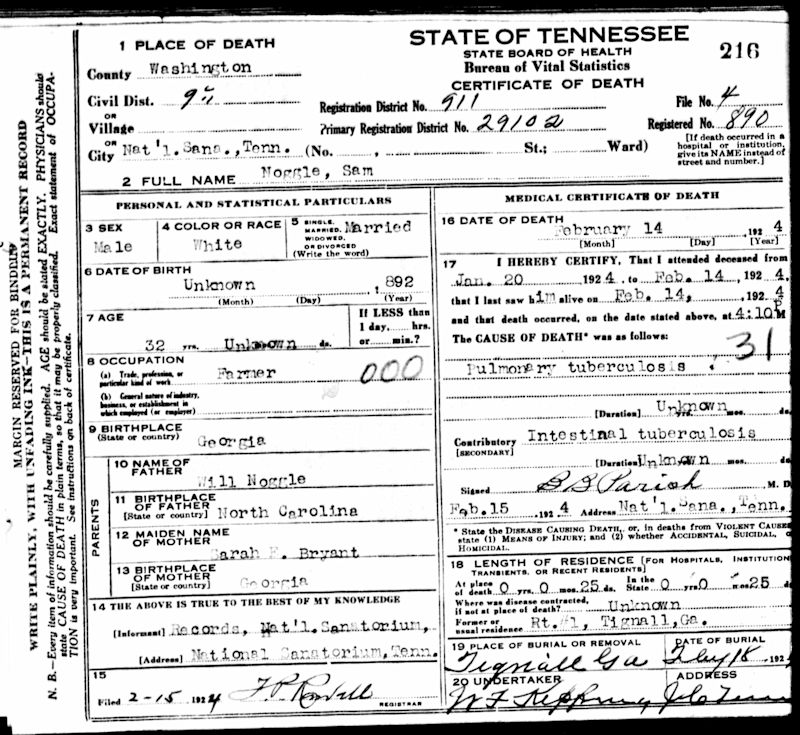 STATE OF TENNESSEE
STATE BOARD OF HEALTH
Bureau of Vital Statistics
CERTIFICATE OF DEATH
216
1 PLACE OF DEATH
County Washington
Civil Dist. 9th
OR
Village
OR
City Nat'l. Sana., Tenn. (No. , St.; Ward)
Registration District No. 911
Primary Registration District No. 29102
File No. 4
Registered No. 890
[If death occurred in a
hospital or institution,
give its NAME instead of
street and number.]
2 FULL NAME Noggle, Sam
PERSONAL AND STATISTICAL PARTICULARS
3 SEX
Male
4 COLOR OR RACE
White
5 SINGLE,
MARRIED,
WIDOWED,
OR DIVORCED
(Write the word)
Married
6 DATE OF BIRTH
Unknown , 892
(Month) (Day) (Year)
7 AGE
32 yrs. Unknown ds.
If LESS than
1 day, hrs.
or min.?
8 OCCUPATION
(a) Trade, profession, or
particular kind of work
Farmer 000
(b) General nature of industry,
business, or establishment in
which employed (or employer)
9 BIRTHPLACE
(State or country) Georgia
PARENTS
10 NAME OF
FATHER
Will Noggle
11 BIRTHPLACE
OF FATHER
[State or country] North Carolina
12 MAIDEN NAME
OF MOTHER
Sarah Bryant
13 BIRTHPLACE
OF MOTHER
(State or country) Georgia
14 THE ABOVE IS TRUE TO THE BEST OF MY KNOWLEDGE
[Informant] Records, Nat'l. Sanatorium,
[Address] National Sanatorium, Tenn.
15
Filed 2-15 1924
REGISTRAR
MEDICAL CERTIFICATE OF DEATH
16 DATE OF DEATH
February 14 , 192 4
[Month] [Day] [Year]
17 I HEREBY CERTIFY, That I attended deceased from
Jan. 20 192 4, to Feb. 14 , 192 4,
that I last saw him alive on Feb. 14, , 192 4
and that death occurred, on the date stated above, at 4:10 P M
The CAUSE OF DEATH* was as follows:
31
Pulmonary tuberculosis
[Duration] Unknown mos. ds.
Contributory Intestinal tuberculosis
[SECONDARY]
[Duration] Unknown mos. ds.
Signed B B Parish M. D.
Feb. 15 , 192 4 Address Nat'l. Sana., Tenn.
* State the DISEASE CAUSING DEATH, or, in deaths from VIOLENT CAUSES
state (1) MEANS OF INJURY; and (2) whether ACCIDENTAL, SUICIDAL, or
HOMICIDAL.
18 LENGTH OF RESIDENCE [FOR HOSPITALS, INSTITUTION
TRANSIENTS, OR RECENT RESIDENTS]
At place
of death 0 yrs. 0 mos. 25 ds.
In the
State 0 yrs. 0 mos 25 ds.
Where was disease contracted,
if not at place of death? Unknown
Former or
usual residence Rt. #1, Tignall, Ga.
19 PLACE OF BURIAL OR REMOVAL
Tignall Ga
DATE OF BURIAL
18 192
20 UNDERTAKER
ADDRESS
MARGIN RESERVED FOR BINDING
WRITE PLAINLY, WITH UNFADING INK—THIS IS A PERMANENT RECORD
N. B.—Every item of information should be carefully supplied. AGE should be stated EXACTLY. PHYSICIANS should
state CAUSE OF DEATH in plain terms, so that it may be properly classified. Exact statement of OCCUPA-
TION is very important. See instructions on back of certificate.